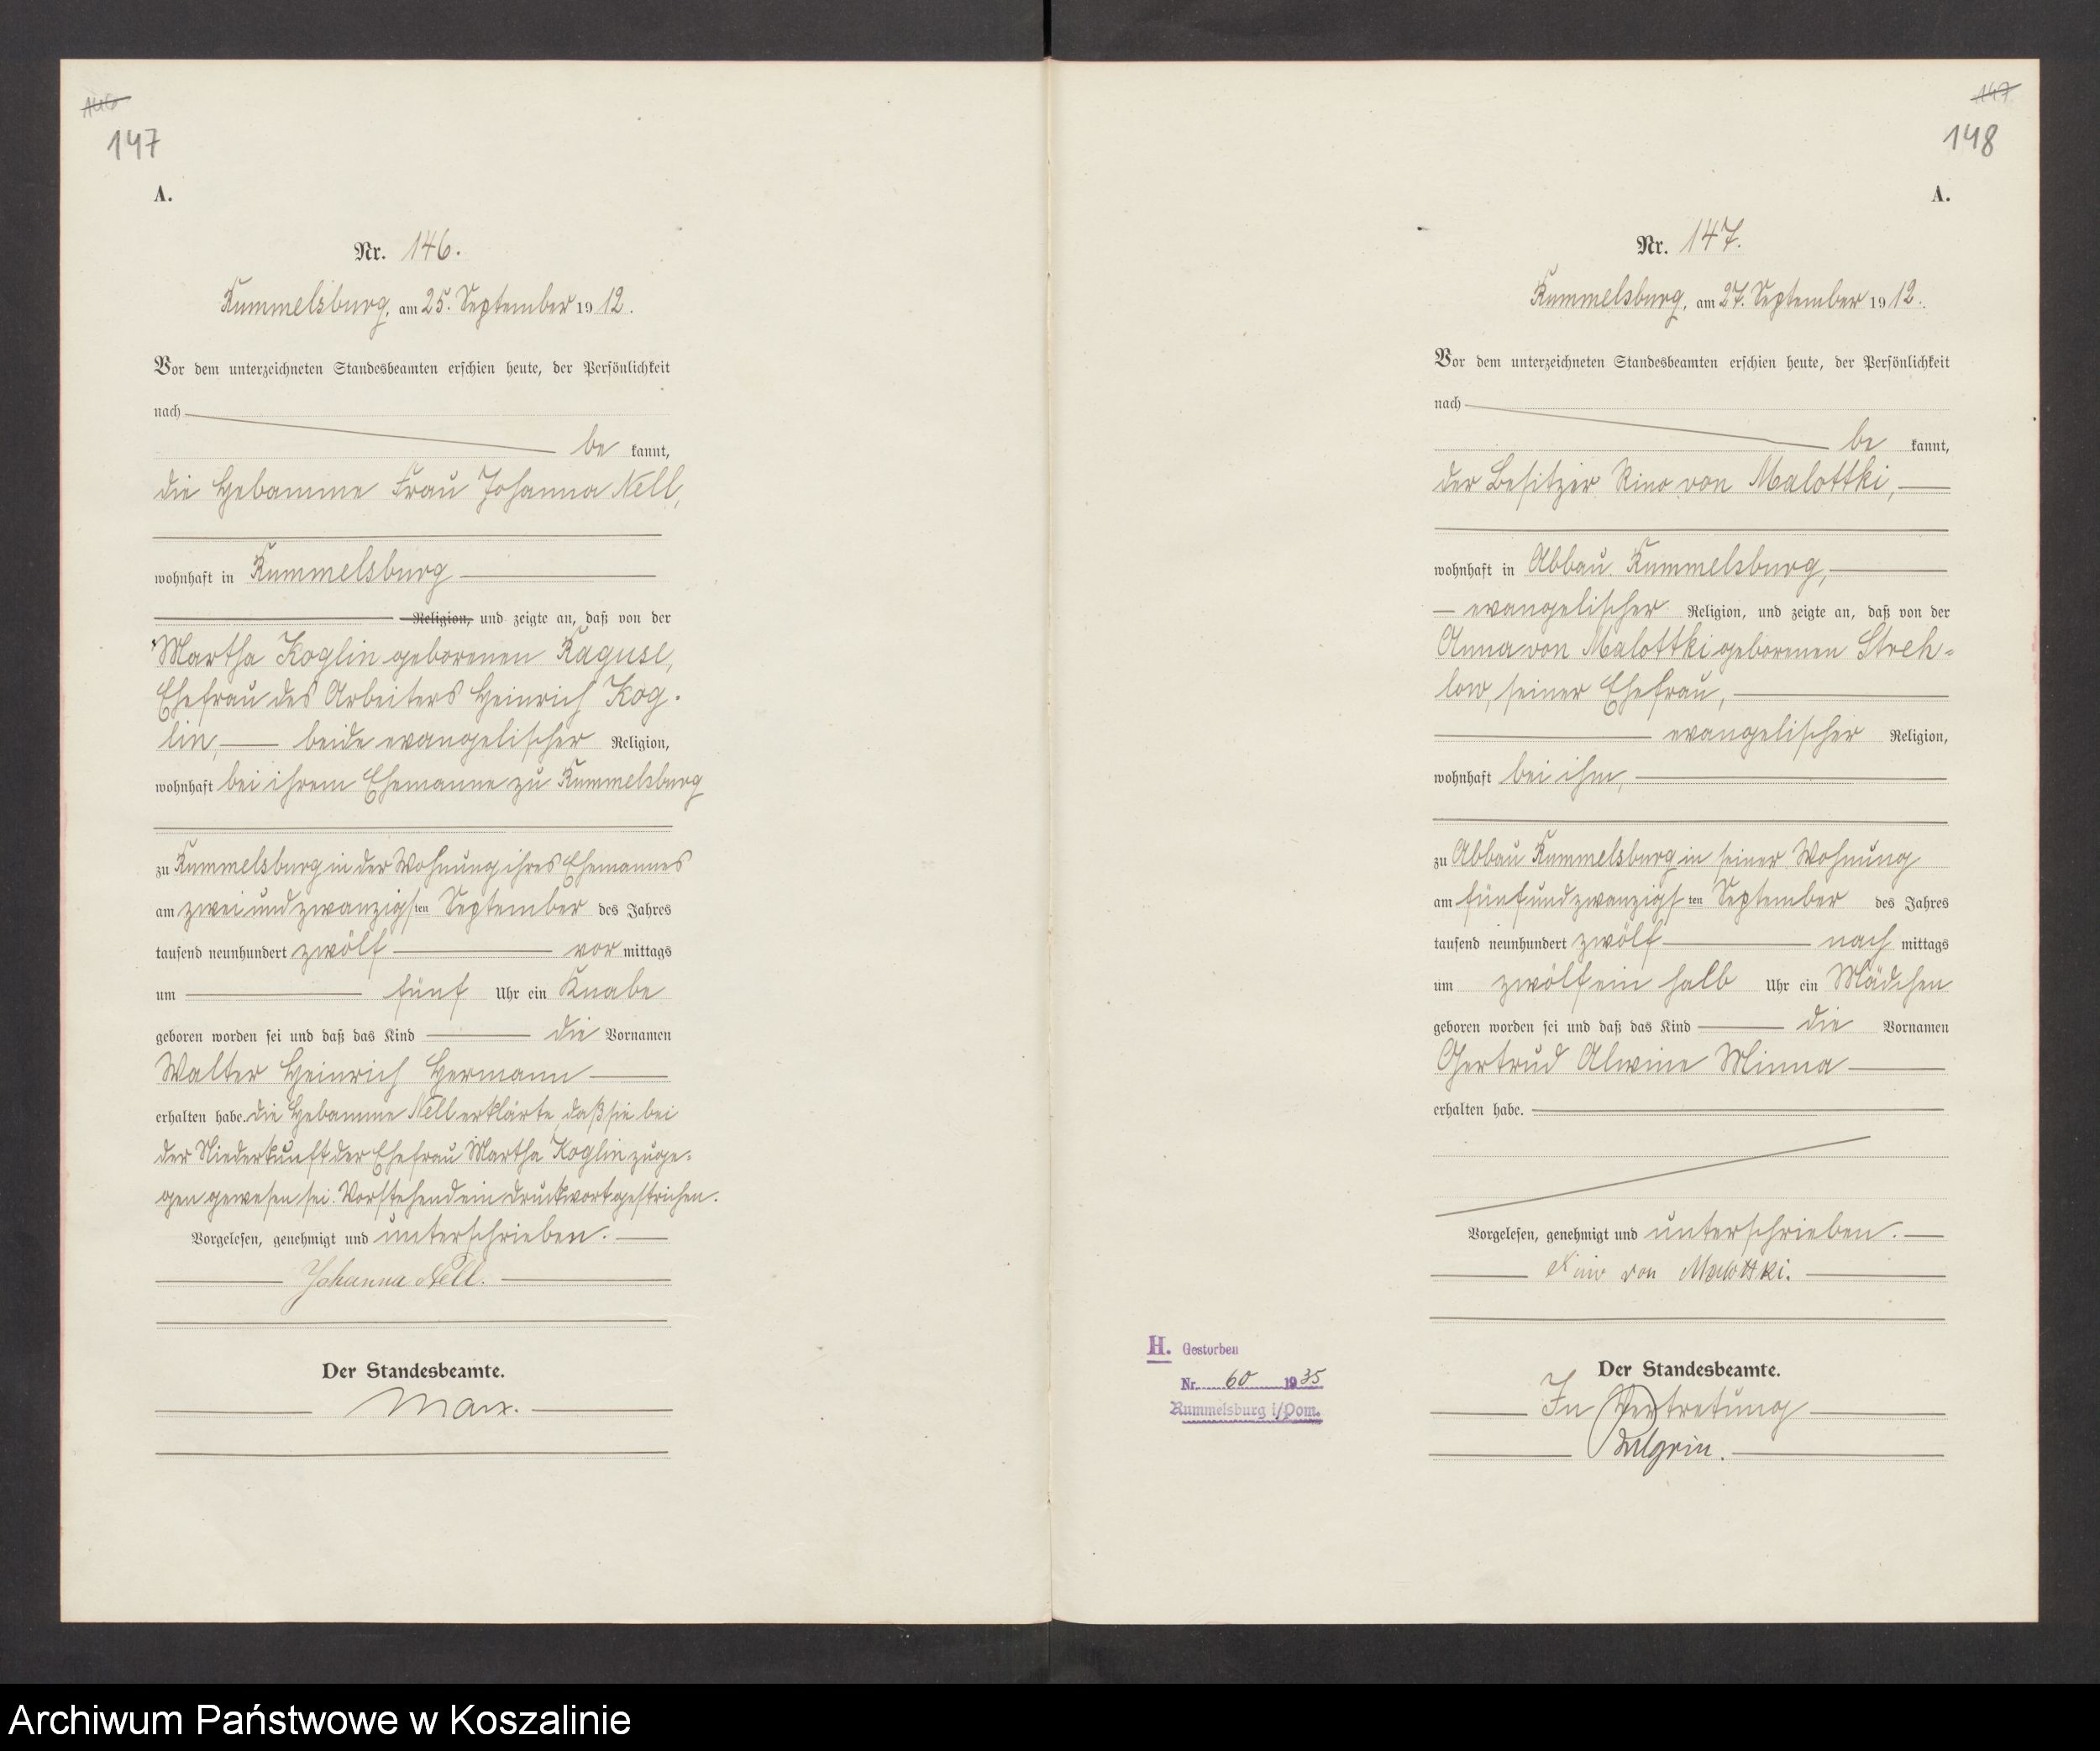 146
147
A.
Nr. 146.
Rummelsburg, am 25. September 1912.
Vor dem unterzeichneten Standesbeamten erschien heute, der Persönlichkeit
nach
be kannt,
die Hebamme Frau Johanna Nell,
wohnhaft in Rummelsburg
Religion, und zeigte an, daß von der
Martha Koglin geborenen Raguse,
Ehefrau des Arbeiters Heinrich Kog-
lin, beide evangelischer Religion,
wohnhaft bei ihrem Ehemanne zu Rummelsburg
zu Rummelsburg in der Wohnung ihres Ehemannes
am zweiundzwanzigsten September des Jahres
tausend neunhundert zwölf vor mittags
um fünf Uhr ein Knabe
geboren worden sei und daß das Kind die Vornamen
Walter Heinrich Hermann
erhalten habe. Die Hebamme Nell erklärte, daß sie bei
der Niederkunft der Ehefrau Martha Koglin zuge-
gen gewesen sei. Vorstehend ein Druckwort gestrichen.
Vorgelesen, genehmigt und unterschrieben.
Johanna Nell.
Der Standesbeamte.
Marx.
147
148
A.
Nr. 147.
Rummelsburg, am 27. September 1912.
Vor dem unterzeichneten Standesbeamten erschien heute, der Persönlichkeit
nach
be kannt,
der Besitzer Rino von Malottki,
wohnhaft in Abbau Rummelsburg,
evangelischer Religion, und zeigte an, daß von der
Anna von Malottki geborenen Streh-
low, seiner Ehefrau,
evangelischer Religion,
wohnhaft bei ihm,
zu Abbau Rummelsburg in seiner Wohnung
am fünfundzwanzigsten September des Jahres
tausend neunhundert zwölf nach mittags
um zwölf ein halb Uhr ein Mädchen
geboren worden sei und daß das Kind die Vornamen
Gertrud Alwine Minna
erhalten habe.
Vorgelesen, genehmigt und unterschrieben.
Rino von Malottki.
Der Standesbeamte.
In Vertretung
H. Gestorben
Nr. 60 1935
Rummelsburg i/Pom.
Archiwum Państwowe w Koszalinie